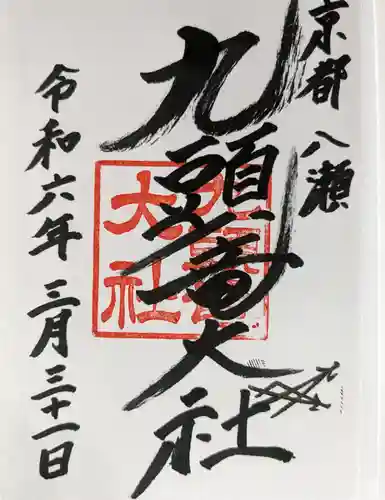 京都 八瀬
九頭竜大社
令和六年 三月三十一日
九頭竜大社